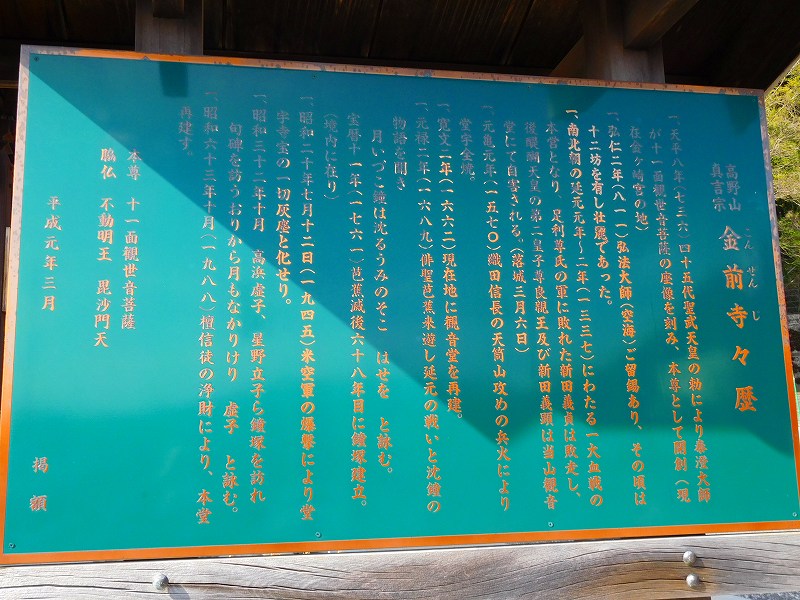 高野山
真言宗
金前寺々歴
こんせんじ
一、天平八年(七三六)四十五代聖武天皇の勅により泰澄大師
が十一面観世音菩薩の座像を刻み、本尊として開創(現
在金ヶ崎宮の地)
一、弘仁二年(八一一)弘法大師(空海)ご留錫あり、その頃は
十二坊を有し壮麗であった。
一、南北朝の延元元年~二年(一三三七)にわたる一大血戦の
本営となり、足利尊氏の軍に敗れた新田義貞は敗走し、
後醍醐天皇の第二皇子尊良親王及び新田義顕は当山観音
堂にて自害される。(落城三月六日)
一、元亀元年(一五七〇)織田信長の天筒山攻めの兵火により
堂宇全焼。
一、寛文二年(一六六二)現在地に観音堂を再建。
一、元禄二年(一六八九)俳聖芭蕉来遊し延元の戦いと沈鐘の
物語を聞き
月いつこ鐘は沈るうみのそこ はせを と詠む。
宝暦十一年(一七六一)芭蕉滅後六十八年目に鐘塚建立。
(境内に在り)
一、昭和二十年七月十二日(一九四五)米空軍の爆撃により堂
宇寺宝の一切灰塵と化せり。
一、昭和三十二年十月 高浜虚子、星野立子ら鐘塚を訪れ
句碑を訪うおりから月もなかりけり 虚子 と詠む。
一、昭和六十三年十月(一九八八)檀信徒の浄財により、本堂
再建す。
本尊 十一面観世音菩薩
脇仏 不動明王 毘沙門天
平成元年三月
掲額